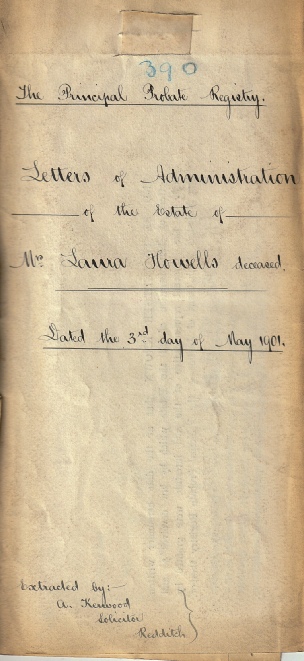 390
The Principal Probate Registry.
Letters of Administration
of the Estate of
Mrs Laura Howells deceased.
Dated the 3rd day of May 1901.
Extracted by:-
A. Kenwood
Solicitor
Redditch